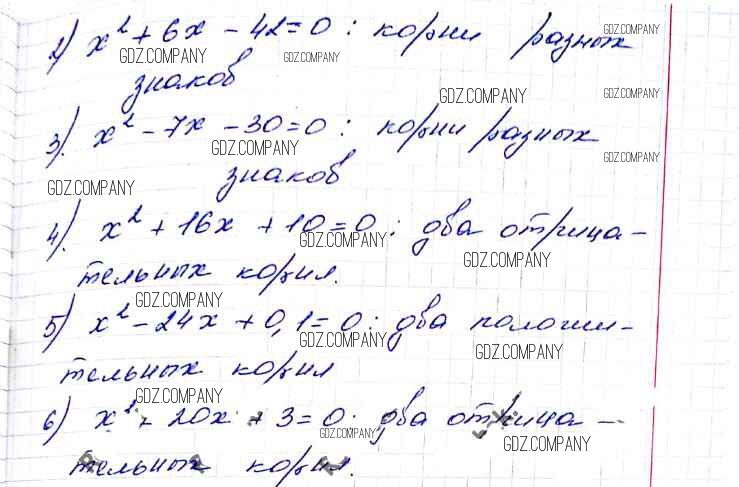 2) x² + 6x - 42 = 0 : корни разных
GDZ.COMPANY
GDZ.COMPANY
GDZ.COMPANY
знаков
GDZ.COMPANY
GDZ.COMPANY
3). x² - 7x - 30 = 0 : корни разных
GDZ.COMPANY
GDZ.COMPANY
знаков
GDZ.COMPANY
4). x² + 16x + 10 = 0 : два отрица-
GDZ.COMPANY
GDZ.COMPANY
тельных корня.
GDZ.COMPANY
5) x² - 24x + 0,1 = 0 : два положи-
GDZ.COMPANY
GDZ.COMPANY
тельных корня
GDZ.COMPANY
6) x² - 20x + 3 = 0 : два отрица-
GDZ.COMPANY
GDZ.COMPANY
тельных корня.